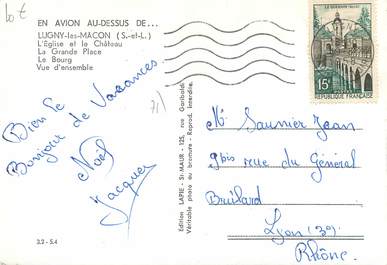 10€
EN AVION AU-DESSUS DE...
LUGNY-les-MACON (S.-et-L.)
L'Église et le Château
La Grande Place
Le Bourg
Vue d'ensemble
71
Bien le
Bonjour de Vacances
Noël
Jacques
3.2 - 5.4
Edition LAPIE - St-MAUR - 125, rue Garibaldi
Véritable photo au bromure - Reprod. Interdite.
LE QUESNOY (NORD)
15F
REPUBLIQUE FRANÇAISE
Mr Saunier Jean
9bis rue du Général
Brulard
Lyon (3e)
Rhône.